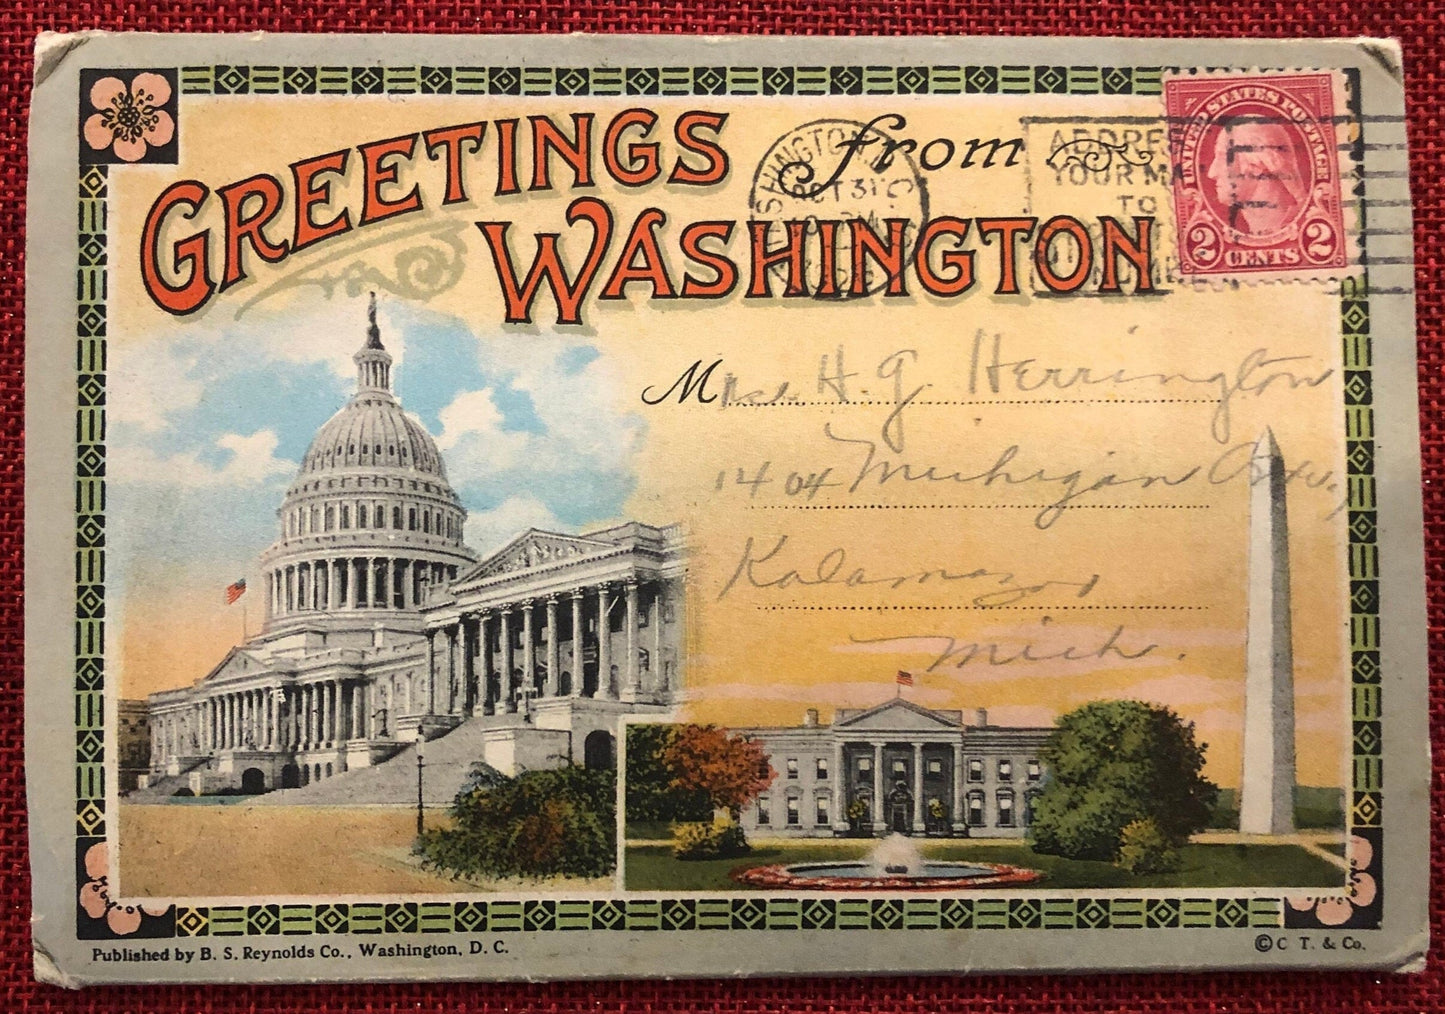 GREETINGS from
WASHINGTON
WASHINGTON, D.C.
OCT 31
ADDRESS
YOUR MA
TO
STREET
NUMBE
UNITED STATES POSTAGE
2 CENTS 2
Mrs. H. G. Herrington
1404 Michigan Ave.,
Kalamazoo,
Mich.
Published by B. S. Reynolds Co., Washington, D. C.
©C T. & Co.